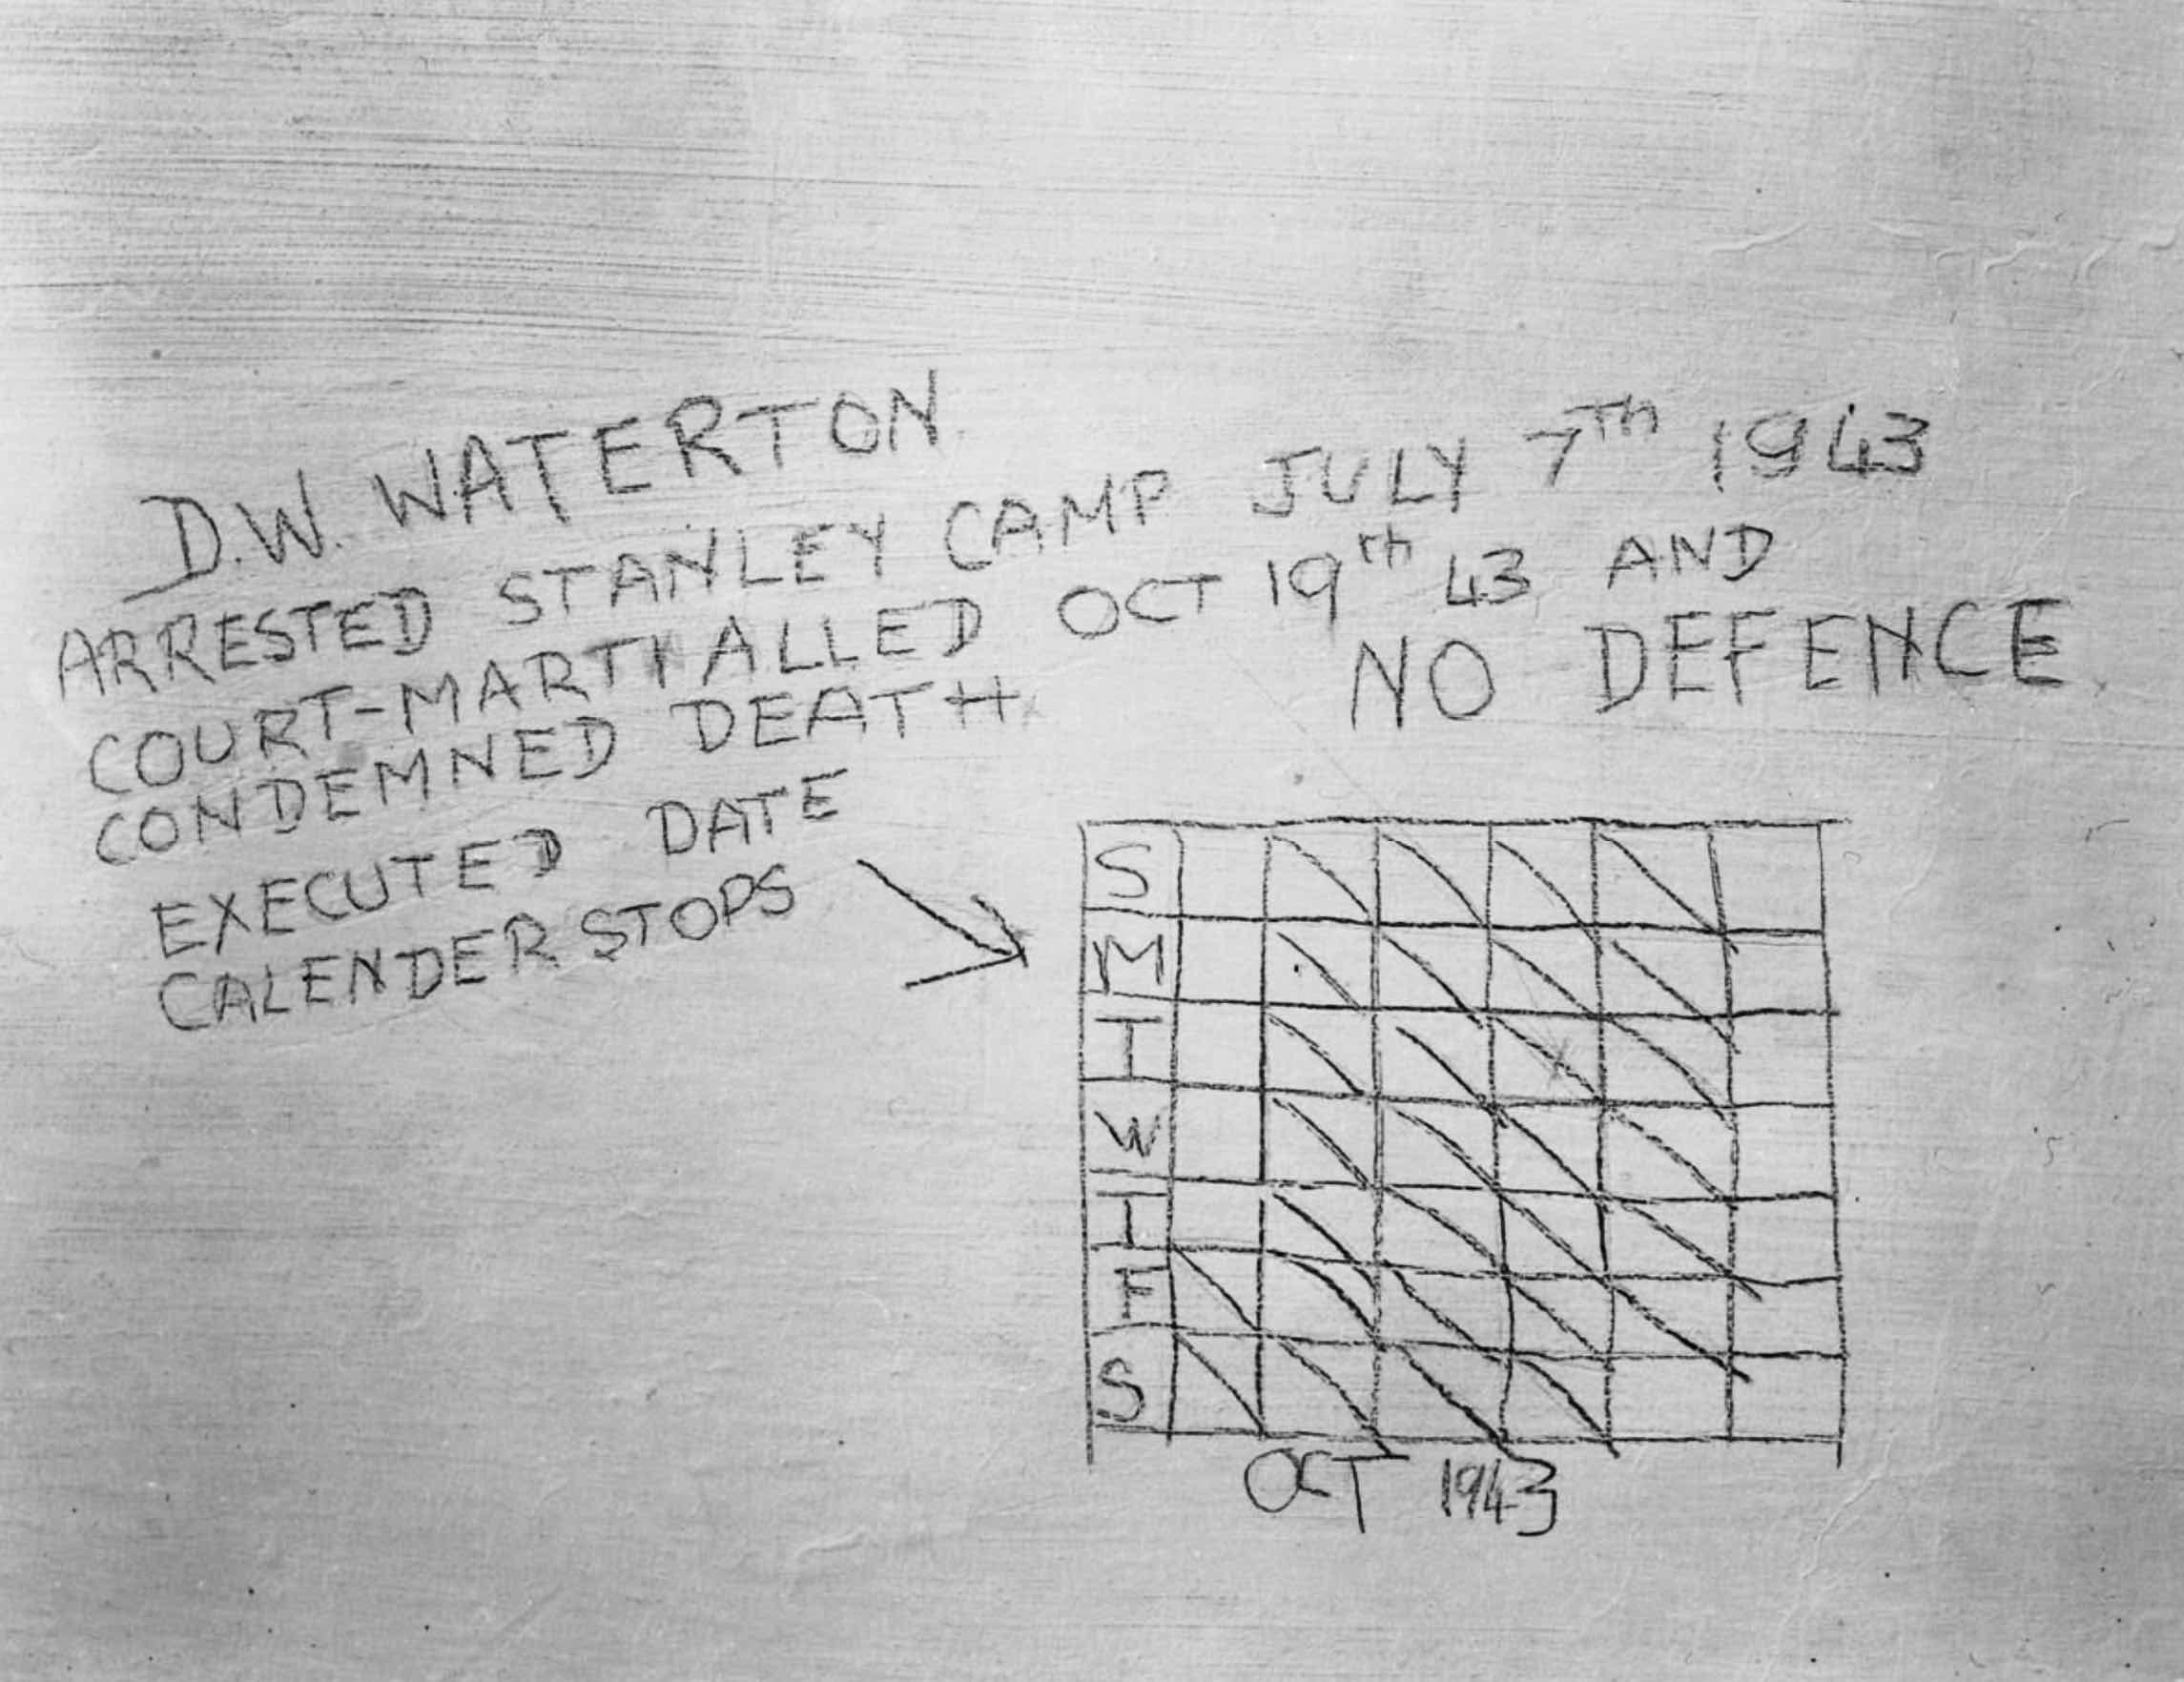 D.W. WATERTON
ARRESTED STANLEY CAMP JULY 7TH 1943
COURT-MARTIALLED OCT 19TH 43 AND
CONDEMNED DEATH NO DEFENCE
EXECUTED DATE
CALENDER STOPS
S
M
T
W
T
F
S
OCT 1943